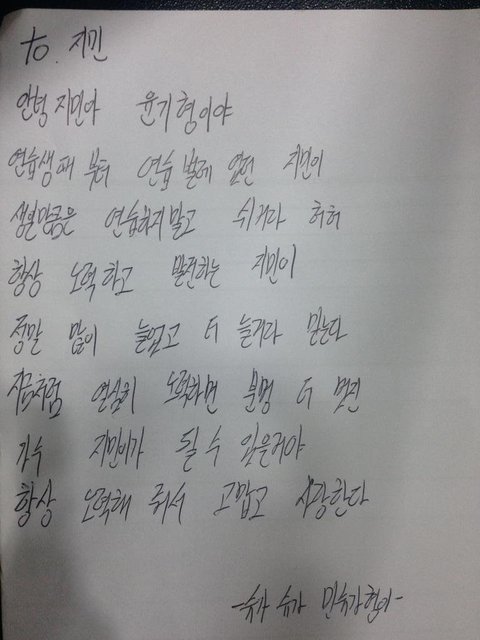 to. 지민
안녕 지민아 윤기형이야
연습생때 부터 연습 밖에 없던 지민이
생일만큼은 연습하지말고 쉬거라 허허
항상 노력하고 발전하는 지민이
정말 많이 늘었고 더 늘거라 믿는다
지금처럼 열심히 노력하면 분명 더 멋진
가수 지민이가 될 수 있을거야
항상 노력해 줘서 고맙고 사랑한다
-슈가 슈가 민슈가 형아-